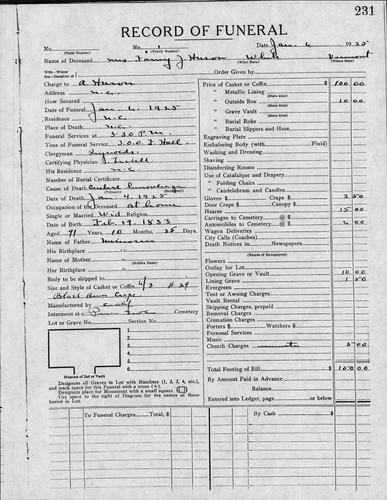 231
RECORD OF FUNERAL
No. (Total Number) No. 1 (Yearly Number) Date Jan. 6 1925
Name of Deceased Mrs. Fanny J. Huson (What Race) (Where Born) Vermont
Wife—Widow
Son—Daughter of Order Given by
Charge to A. Huson
Address N.C.
How Secured
Date of Funeral Jan. 6. 1925
Residence N.C.
Place of Death N.C.
Funeral Services at 1-30 P.M.
Time of Funeral Service I.O.O.F. Hall
Clergyman Reynolds
Certifying Physician
His Residence N.C.
Number of Burial Certificate
Cause of Death Cerebral (Primary) (Secondary)
Date of Death Jan 4, 1925
Occupation of the Deceased at home
Single or Married Wid Religion
Date of Birth Feb. 19. 1833
Aged 91 Years 10 Months 25 Days
Name of Father
His Birthplace
Name of Mother (Maiden Name)
Her Birthplace
Body to be shipped to
Size and Style of Casket or Coffin 6/3 # 29
Manufactured by
Interment at Pine Grove Cemetery
Lot or Grave No. Section No.
1.
2.
3.
4.
5.
6.
Diagram of Lot or Vault
Designate all Graves in Lot with Numbers (1, 2, 3, 4, etc.),
and mark space for this Funeral with a cross (+).
Designate place for Monument with a small square
Use space to the right of Diagram for the names of those
buried in Lot.
Price of Casket or Coffin $ 100 00
" Metallic Lining (State kind)
" Outside Box (State kind) 10 00
" Grave Vault (State kind)
" Burial Robe (State kind)
" Burial Slippers and Hose
Engraving Plate
Embalming Body (with Fluid)
Washing and Dressing
Shaving
Disinfecting Rooms
Use of Catafalque and Drapery
" Folding Chairs
" Candelabrum and Candles
Gloves $ Crape $ 2 50
Door Crape $ Canopy $
Hearse 15 00
Carriages to Cemetery @ $
Automobiles to Cemetery @ $
Wagon Deliveries
City Calls (Coaches)
Death Notices in Newspapers
Flowers
Outlay for Lot
Opening Grave or Vault 10 00
Lining Grave 1 50
Evergreen
Tent or Awning Charges
Vault Rental
Shipping Charges, prepaid
Removal Charges
Cremation Charges
Porters $ Watchers $
Personal Services
Music
Church Charges 5 00
Total Footing of Bill $ 150 00
By Amount Paid in Advance
Balance
Entered into Ledger, page or below
To Funeral Charges Total, $ By Cash $